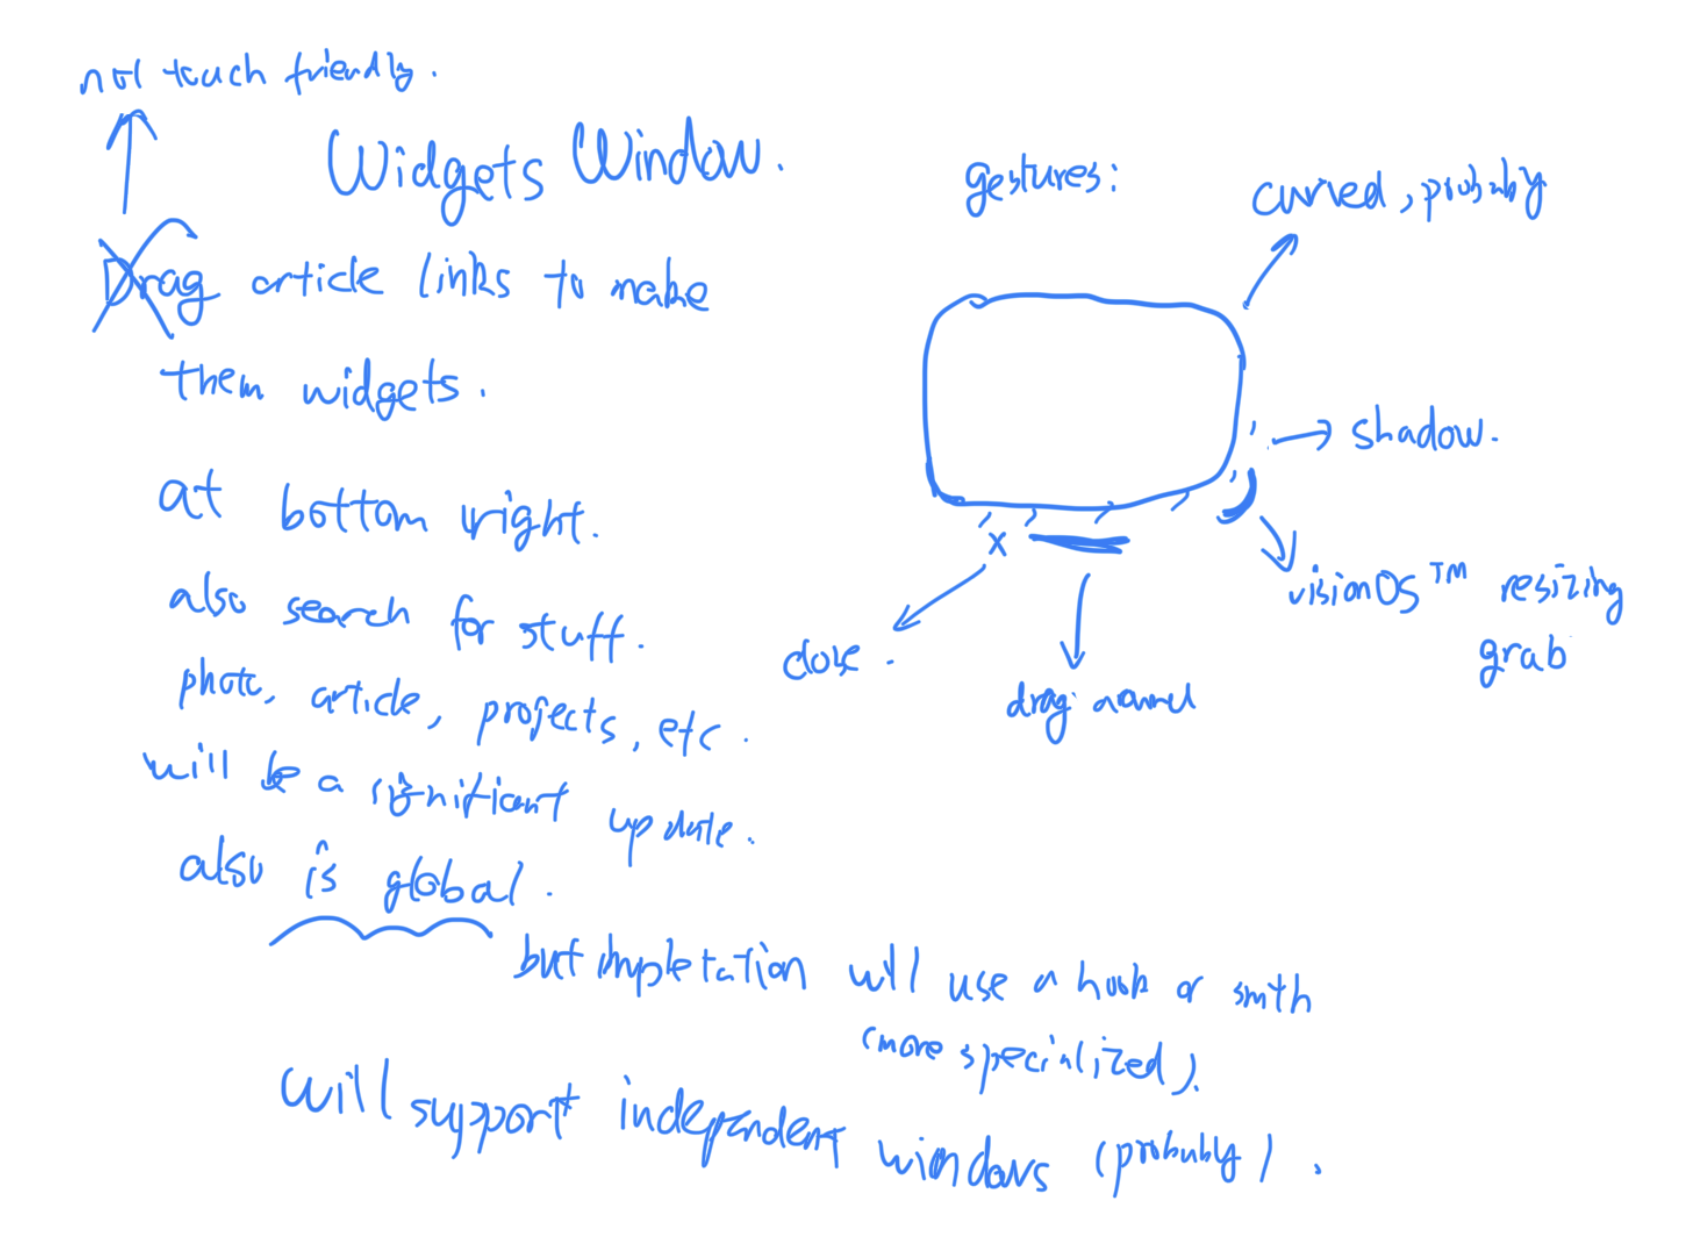 not touch friendly.
Widgets Window.
Drag article links to make
them widgets.
at bottom right.
also search for stuff.
photo, article, projects, etc.
will be a significant update.
also is global.
but impletation will use a hook or smth
(more specialized).
will support independent windows (probably).
gestures:
curved, probably
shadow.
visionOS™ resizing
grab
close.
drag around